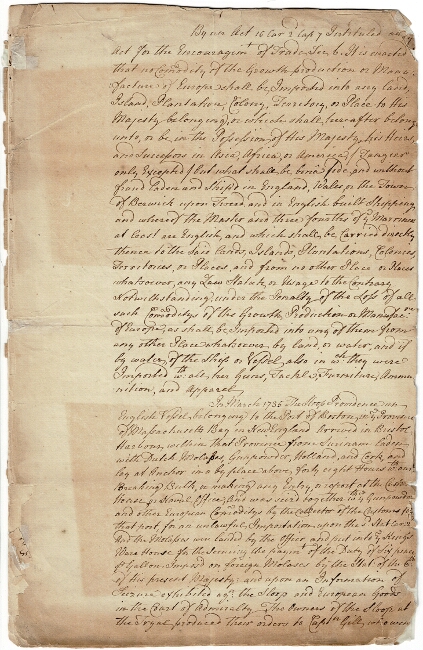 By an Act 15 Car 2 Cap 7 Intituled an
Act for the Encouragemt of Trade Sec 6. It is enacted
that no Comodity of the Growth production or Manu
facture of Europe shall be Imported into any land,
Island, Plantation, Colony, Territory, or Place to his
Majesty belonging, or which shall hereafter belong
unto, or be in the Possession of his Majesty, his Heirs,
and Successors in Asia, Africa, or America (Tangier
only Excepted) but what shall be bona fide, and without
fraud laden and Shipt in England, Wales or the Town
of Berwick upon Tweed and in English built Shipping,
and whereof the Master and three fourths of ye Marriners
at least are English, and which shall be Carried directly
thence to the said lands, Islands, Plantations, Colonies,
Territories, or Places, and from no other Place or Places
whatsoever, any Law, Statute, or Usage to the Contrary
Notwithstanding, under the Penalty of the Loss of all
such Comoditys of the Growth, Production or Manufac
of Europe, as shall be Imported into any of them from
any other Place whatsoever by land, or water, and if
by water, of the Ship or Vessel also in wch they were
Imported wth all her Guns, Tackle, Furniture, Ammu
nition, and Apparel
In March 1735 the Sloop Providence an
English Vessel belonging to the Port of Boston, in ye Province
of Massachusetts Bay in New England Arrived in Bristol
Harbour within that Province from Surinam laden
with Dutch Molasses, Gunpowder, Holland, and Cork, and
lay at Anchor in a by place above forty eight Hours wthout
Breaking Bulk, or making any Entry, or report at the Custom
House or Naval Office, And was seized together wth ye Gunpowder
and other European Comoditys by the Collector of the Customs for
that port for an unlawful Importation upon the
And the Molasses were landed by the Officer and put into ye Kings
Ware House for the Securing the paymt of the Duty of Six pence
Gallon Imposed on foreign Molasses by the Stat of the 6th
of his present Majesty and upon an Information of
Seizure exhibited agt the Sloop and European Goods
in the Court of Admiralty The Owners of the Sloop at
the Tryal produced their orders to Captn Gally